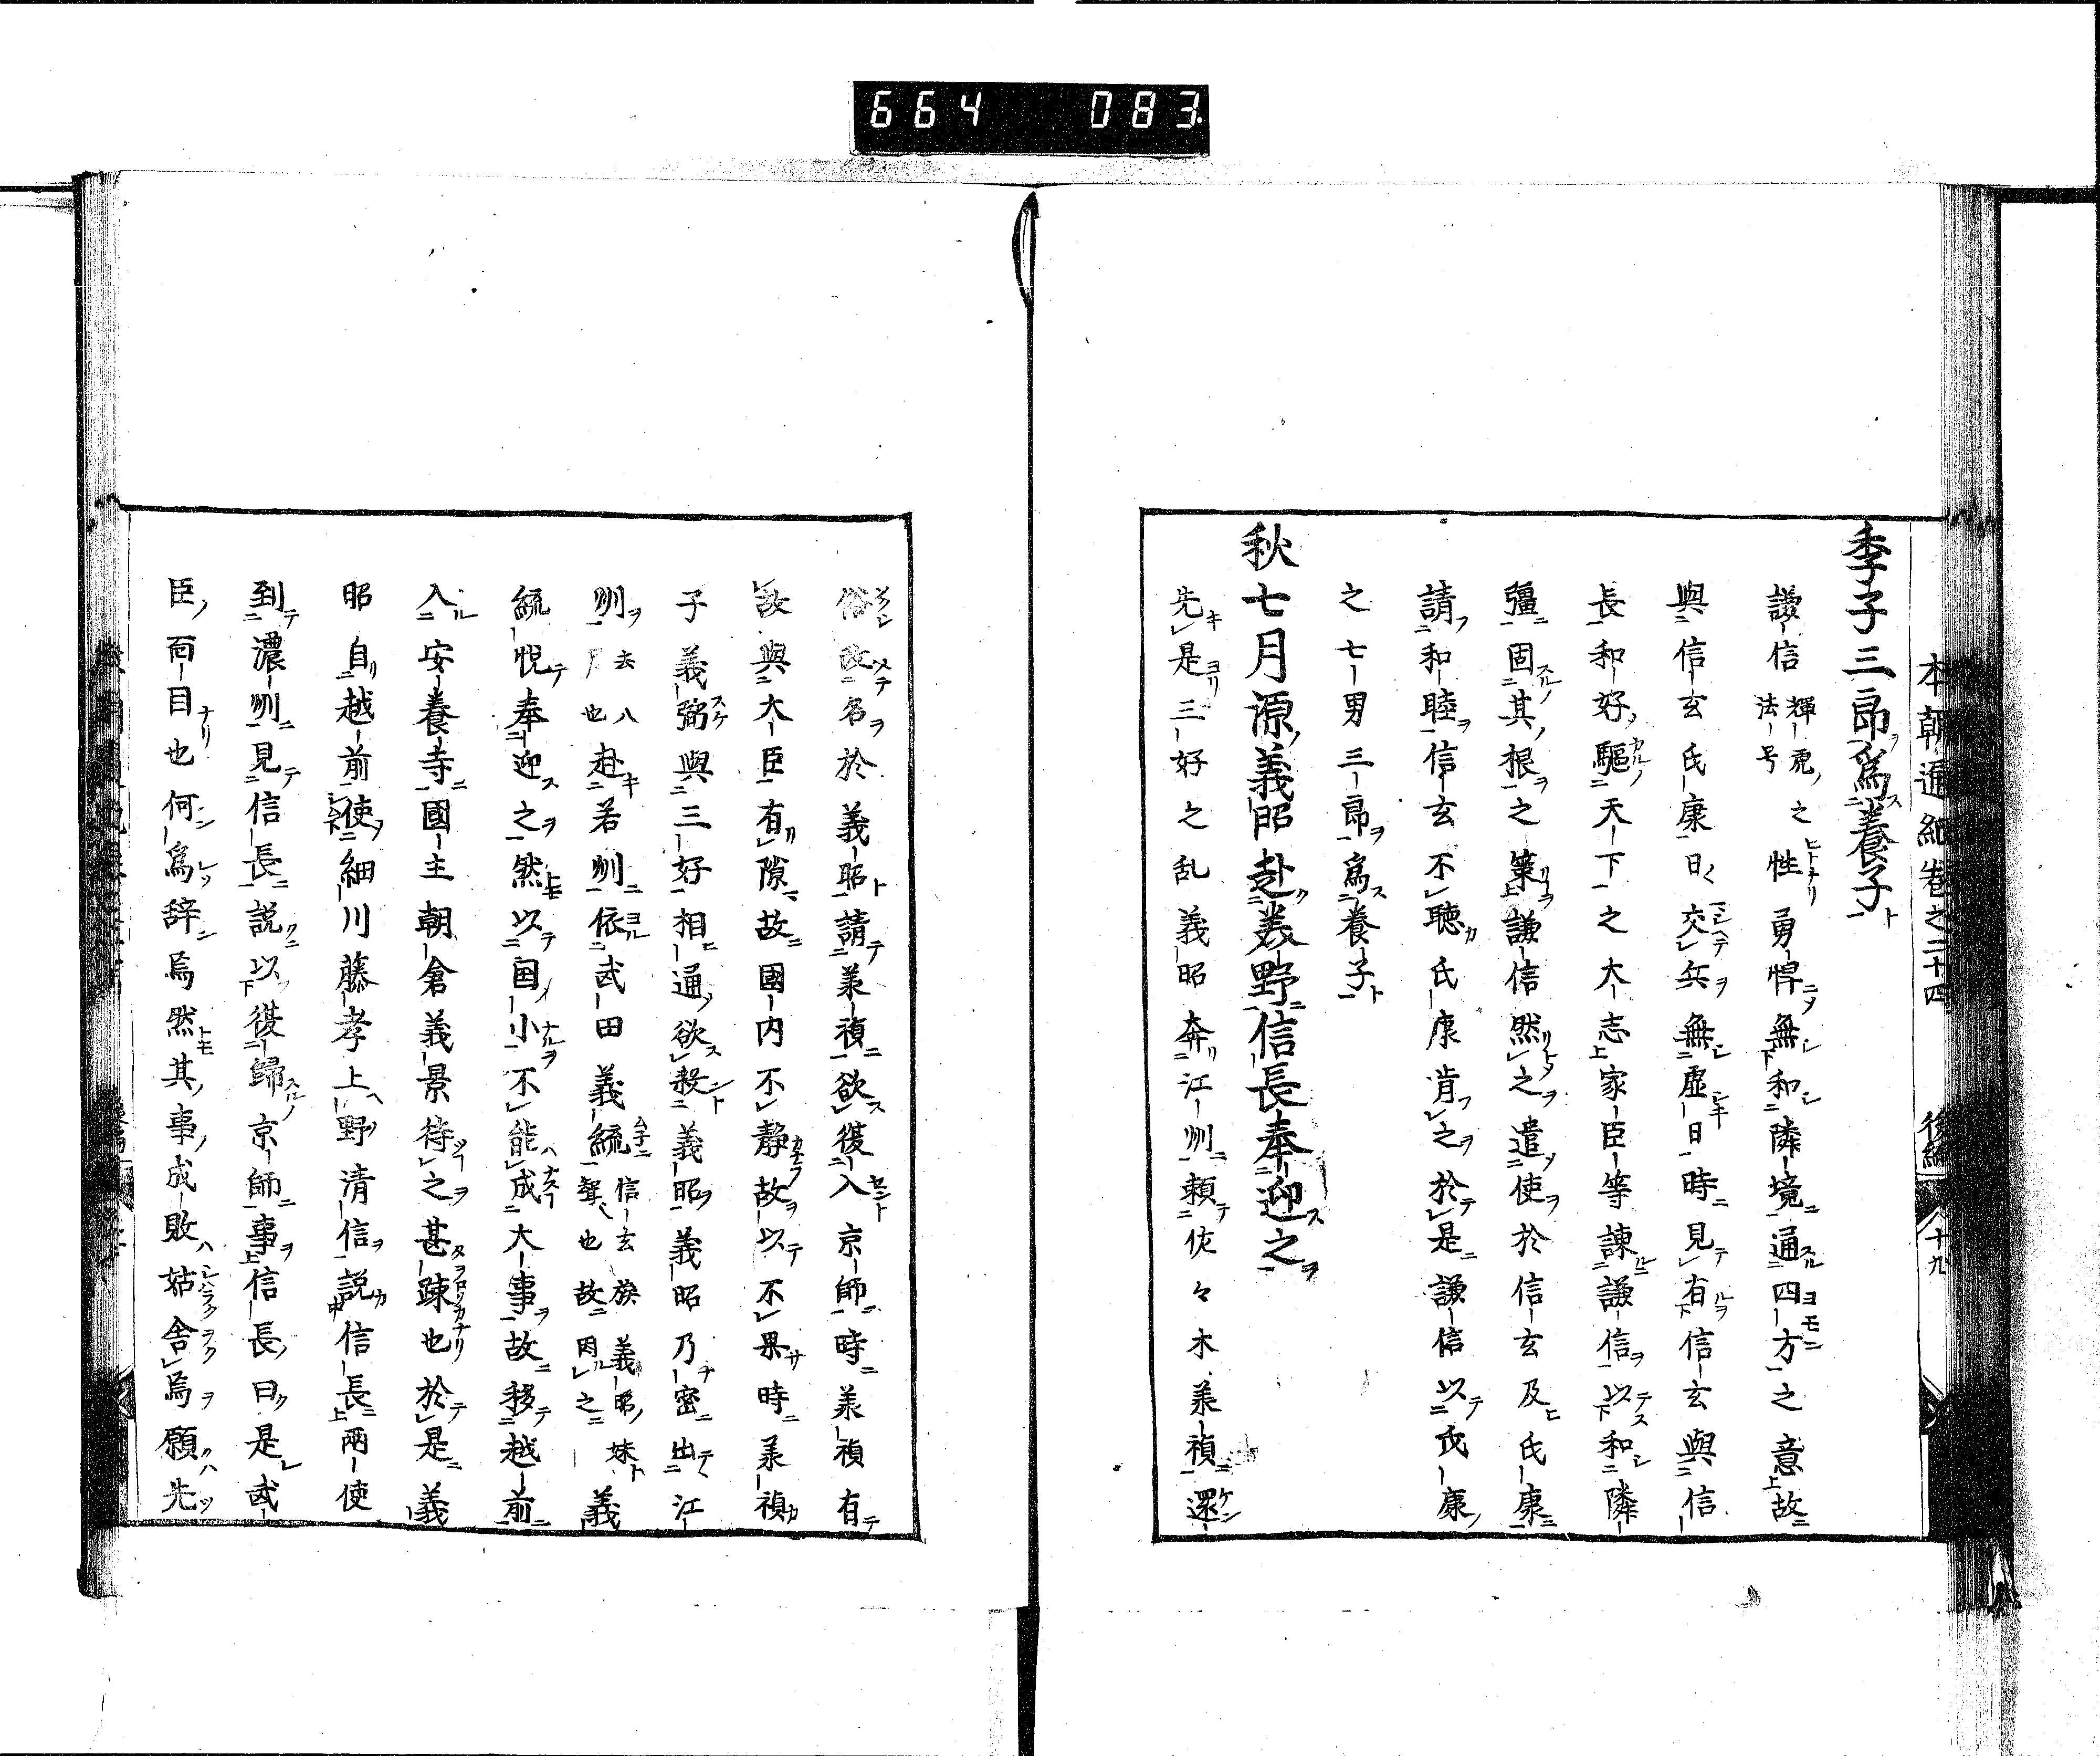 664 083
本朝通紀巻之二十四 後編 十九
季子三郎為養子
謙信輝虎之法号性勇悍無和隣境通四方之意故
與信玄氏康日交兵無虚日時見有信玄與信
長和好驅天下之大志家臣等諫謙信以和隣
彊固其根之策謙信然之遣使於信玄及氏康
請和睦信玄不聴氏康肯之於是謙信以氏康
之七男三郎為養子
秋七月源義昭赴美野信長奉迎之
先是三好之乱義昭奔江州頼佐々木義禎還
俗改名於義昭請義禎欲復入京師時義禎有
故與大臣有隙故國内不静故以不果時義禎
子義弼與三好相通欲殺義昭義昭乃密出江
州去八月也赴若州依武田義統信玄族義昭妹聟也故因之義
統悦奉迎之然以国小不能成大事故移越前
入安養寺國主朝倉義景待之甚疎也於是義
昭自越前使細川藤孝上野清信説信長兩使
到濃州見信長説以復歸京師事信長曰是武
臣面目也何為辞焉然其事成敗姑舎焉願先